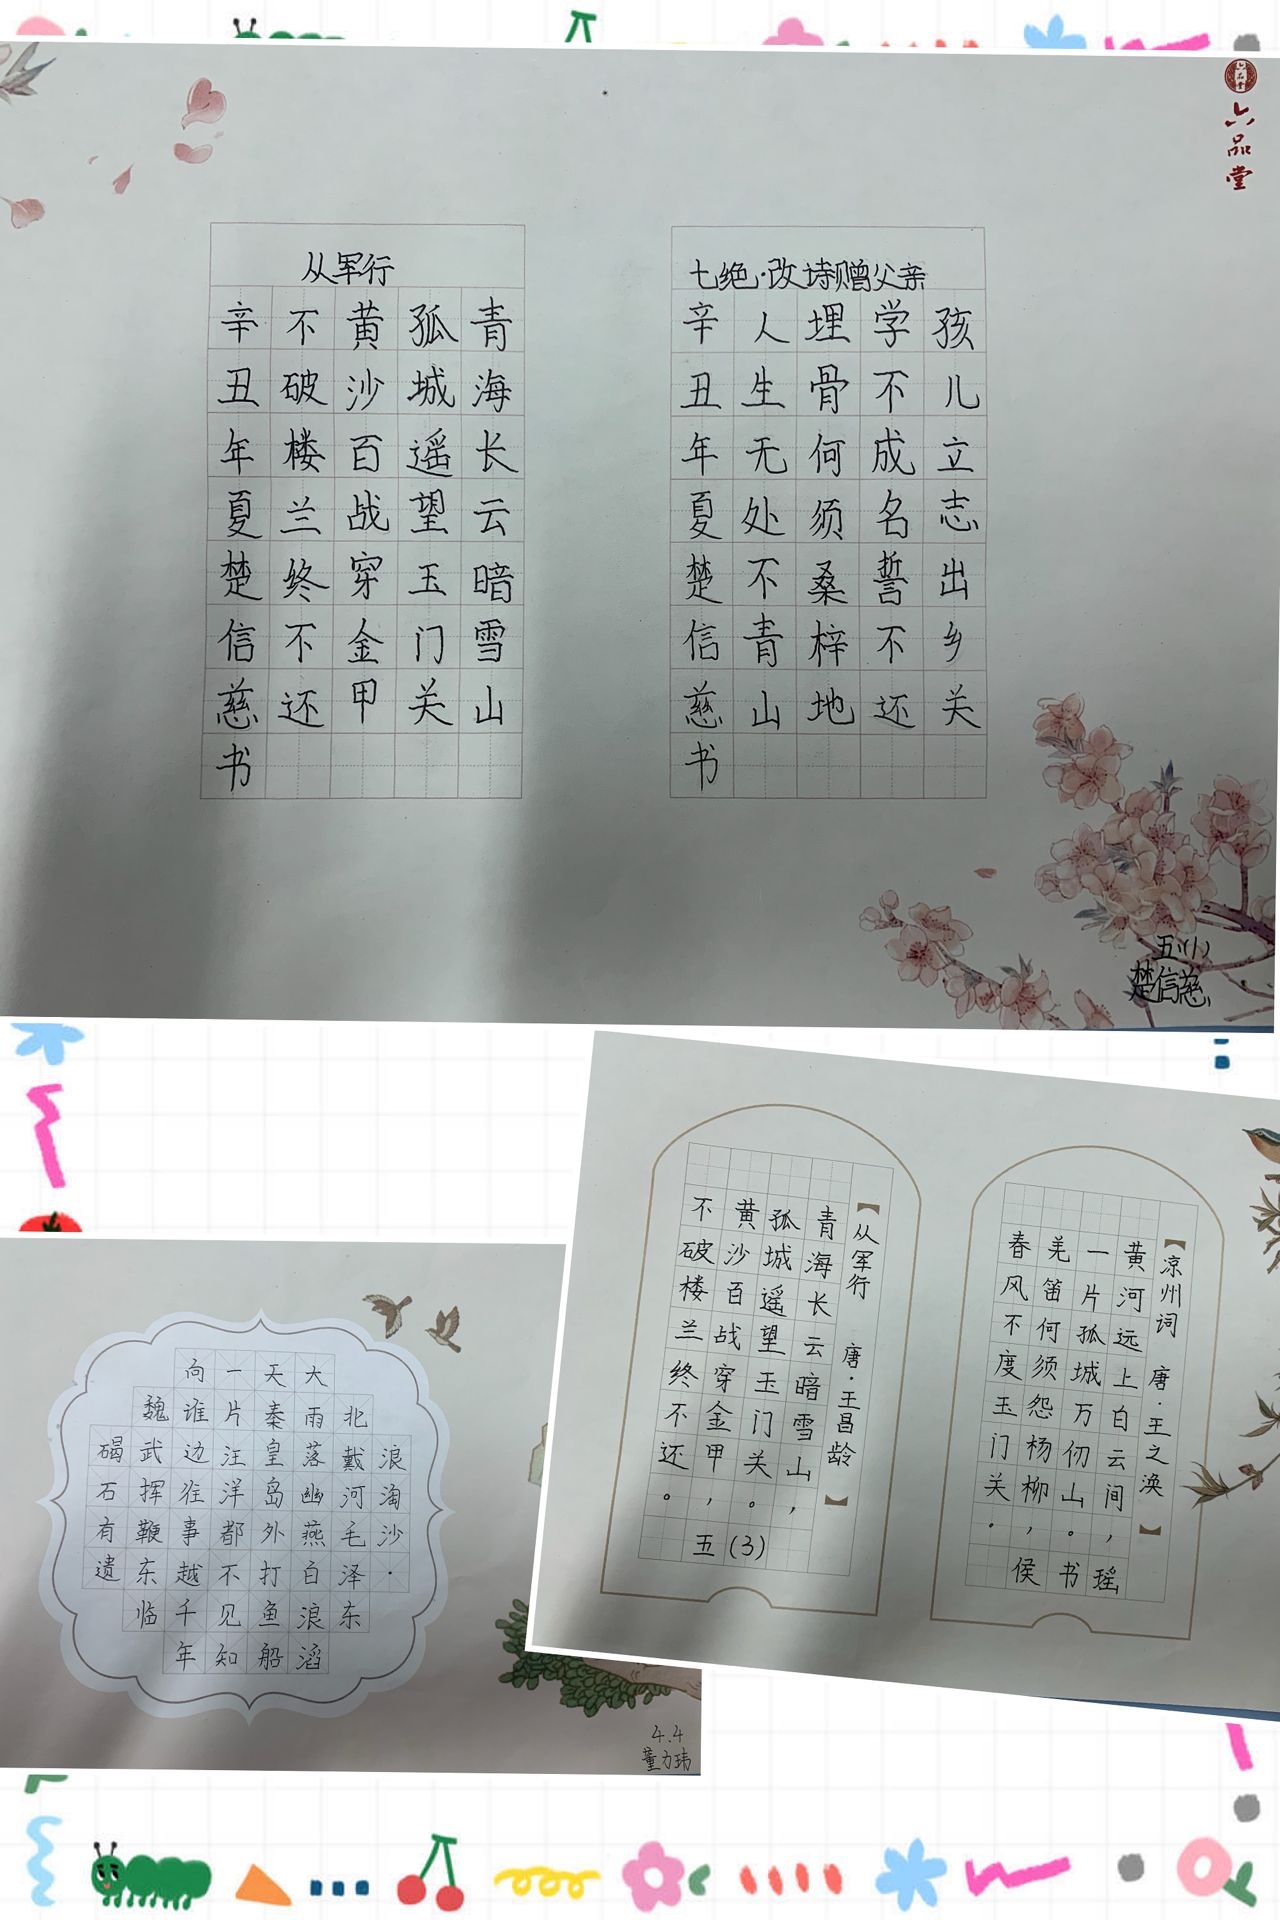 六品堂
六品堂
七绝·改诗赠父亲
孩儿立志出乡关
学不成名誓不还
埋骨何须桑梓地
人生无处不青山
辛丑年夏楚信慈书
从军行
青海长云暗雪山
孤城遥望玉门关
黄沙百战穿金甲
不破楼兰终不还
辛丑年夏楚信慈书
五(1)
楚信慈
【凉州词 唐·王之涣】
黄河远上白云间，
一片孤城万仞山。
羌笛何须怨杨柳，
春风不度玉门关。
侯书瑶
【从军行 唐·王昌龄】
青海长云暗雪山，
孤城遥望玉门关。
黄沙百战穿金甲，
不破楼兰终不还。
五(3)
浪淘沙·
北戴河毛泽东
大雨落幽燕白浪滔
天秦皇岛外打鱼船
一片汪洋都不见知
向谁边往事越千年
魏武挥鞭东临
碣石有遗
4.4
董力玮